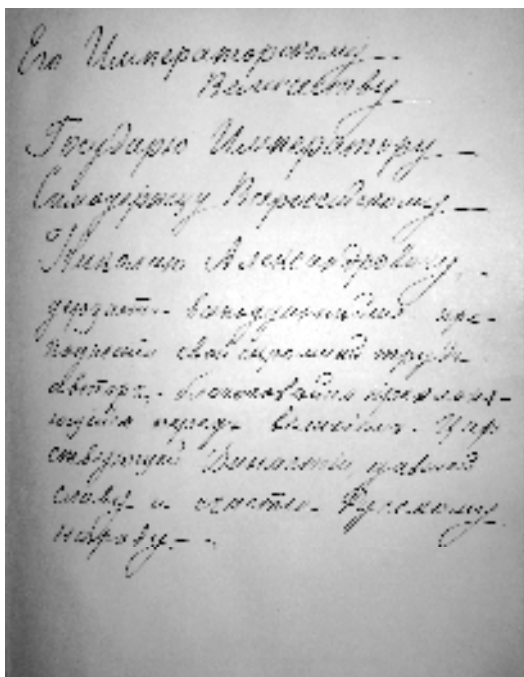 Его Императорскому
Величеству
Государю Императору
Самодержцу Всероссійскому
Николаю Александровичу
дерзаетъ пре-
поднести свой скромный трудъ
авторъ,
передъ величіемъ Цар
ствующей Династіи, давшей
славу и счастье Русскому
народу